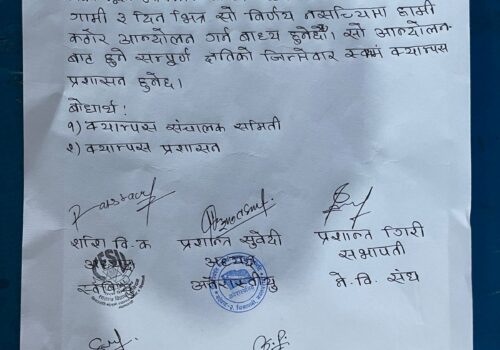 गामी ३ दिन भित्र सो निर्णय नसच्चिमा हामी
कठोर आन्दोलन गर्न बाध्य हुनेछौं। सो आन्दोलन-
बाट हुने सम्पूर्ण क्षतिको जिम्मेवार स्वयं क्याम्पस
प्रशासन हुनेछ।
बोधार्थ:
१) क्याम्पस संचालक समिती
२) क्याम्पस प्रशासन
शशि वि.क
प्रशान्त सुवेदी
प्रशान्त गिरी
अध्यक्ष
सभापती
ने. वि. संघ